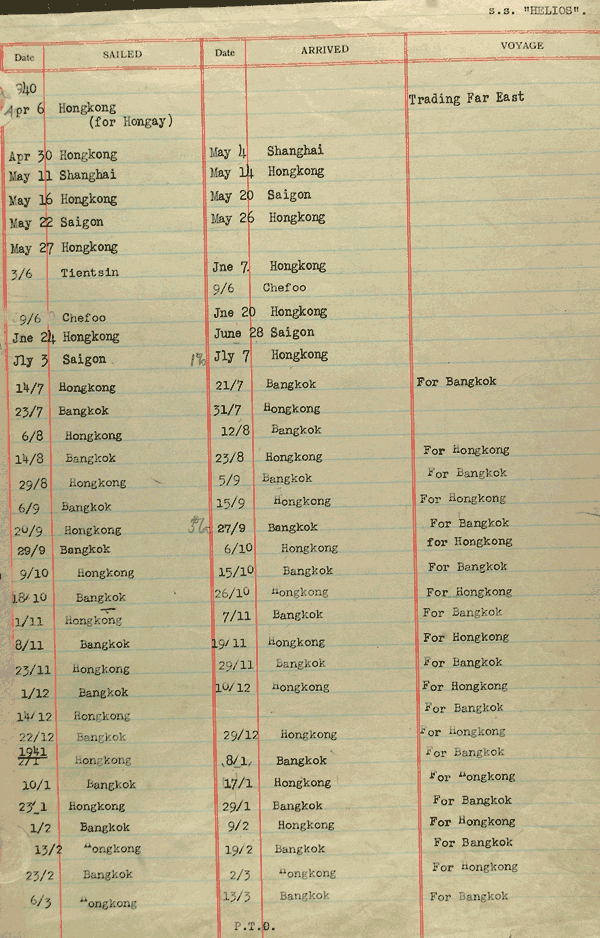 s.s. "HELIOS".
Date SAILED Date ARRIVED VOYAGE
940
Apr 6 Hongkong Trading Far East
(for Hongay)
Apr 30 Hongkong May 4 Shanghai
May 11 Shanghai May 14 Hongkong
May 16 Hongkong May 20 Saigon
May 22 Saigon May 26 Hongkong
May 27 Hongkong
3/6 Tientsin Jne 7 Hongkong
9/6 Chefoo
9/6 Chefoo Jne 20 Hongkong
Jne 24 Hongkong June 28 Saigon
Jly 3 Saigon Jly 7 Hongkong
14/7 Hongkong 21/7 Bangkok For Bangkok
23/7 Bangkok 31/7 Hongkong
6/8 Hongkong 12/8 Bangkok
14/8 Bangkok 23/8 Hongkong For Hongkong
29/8 Hongkong 5/9 Bangkok For Bangkok
6/9 Bangkok 15/9 Hongkong For Hongkong
20/9 Hongkong 27/9 Bangkok For Bangkok
29/9 Bangkok 6/10 Hongkong for Hongkong
9/10 Hongkong 15/10 Bangkok For Bangkok
18/10 Bangkok 26/10 Hongkong For Hongkong
1/11 Hongkong 7/11 Bangkok For Bangkok
8/11 Bangkok 19/11 Hongkong For Hongkong
23/11 Hongkong 29/11 Bangkok For Bangkok
1/12 Bangkok 10/12 Hongkong For Hongkong
14/12 Hongkong For Bangkok
22/12 Bangkok 29/12 Hongkong For Hongkong
1941
2/1 Hongkong 8/1 Bangkok For Bangkok
10/1 Bangkok 17/1 Hongkong For Hongkong
23/1 Hongkong 29/1 Bangkok For Bangkok
1/2 Bangkok 9/2 Hongkong For Hongkong
13/2 Hongkong 19/2 Bangkok For Bangkok
23/2 Bangkok 2/3 Hongkong For Hongkong
6/3 Hongkong 13/3 Bangkok For Bangkok
P.T.O.